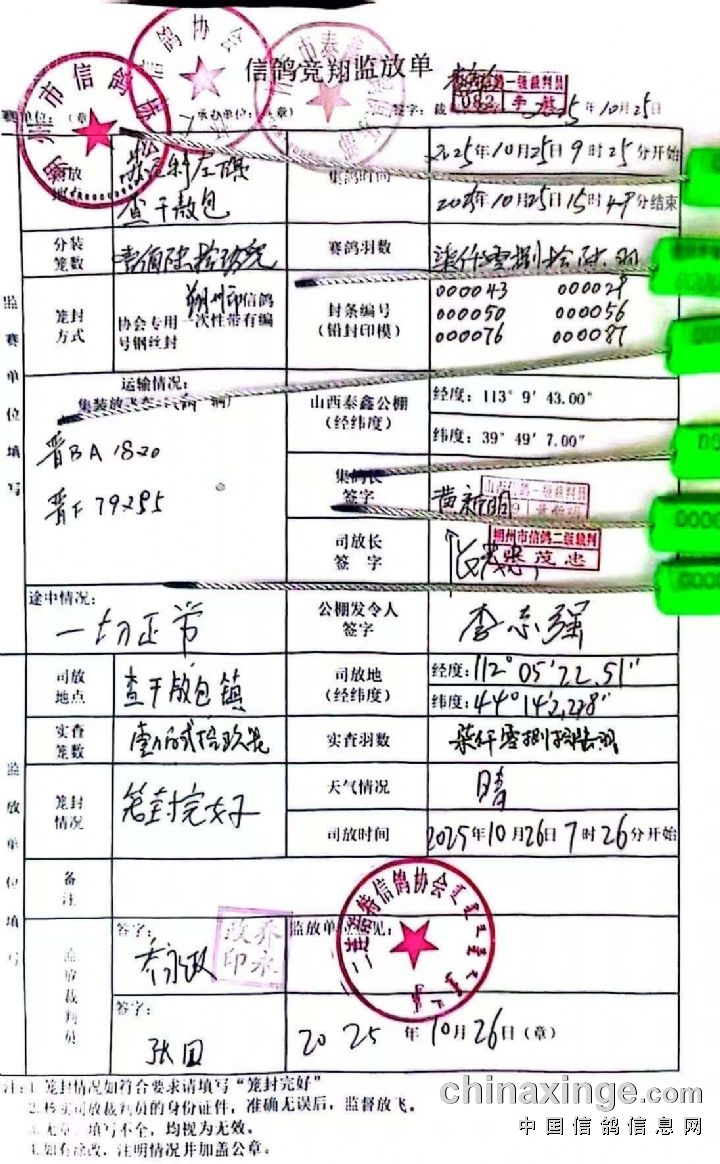 信鸽竞翔监放单
赛单位：（章） 承办单位：（章） 签字： 年10月25日
朔州市信鸽协会
司放地 苏尼特左旗
查干敖包
集鸽时间 2025年10月25日9时25分开始
2025年10月25日15时49分结束
分装笼数
赛鸽羽数 柒仟零捌拾陆羽
笼封方式 朔州市信鸽
协会专用一次性带有编
号钢丝封
封条编号
（铅封印模）
000043 000029
000050 000056
000076 000087
监赛单位填写
运输情况：
晋BA1820
晋F79295
山西泰鑫公棚
（经纬度）
经度：113° 9' 43.00"
纬度：39° 49' 7.00"
集鸽长
签字 黄新明
司放长
签字
朔州市信鸽二级裁判
张茂忠
途中情况：
一切正常
公棚发令人
签字 李志强
监放单位填写
司放
地点 查干敖包镇
司放地
（经纬度）
经度：112° 05' 22.51"
纬度：44° 14' 2.28"
实查
笼数
实查羽数 柒仟零捌拾陆羽
笼封
情况 笼封完好
天气情况 晴
司放时间 2025年10月26日7时26分开始
备注
监放裁判员
签字： 乔永政
乔永政印
监放单位意见：
二连浩特信鸽协会
签字：
张田
2025年10月26日（章）
注：1.笼封情况如符合要求请填写“笼封完好”
2.核实司放裁判员的身份证件，准确无误后，监督放飞。
3.无章、填写不全，均视为无效。
4.如有涂改，注明情况并加盖公章。
chinaxinge.com
中国信鸽信息网